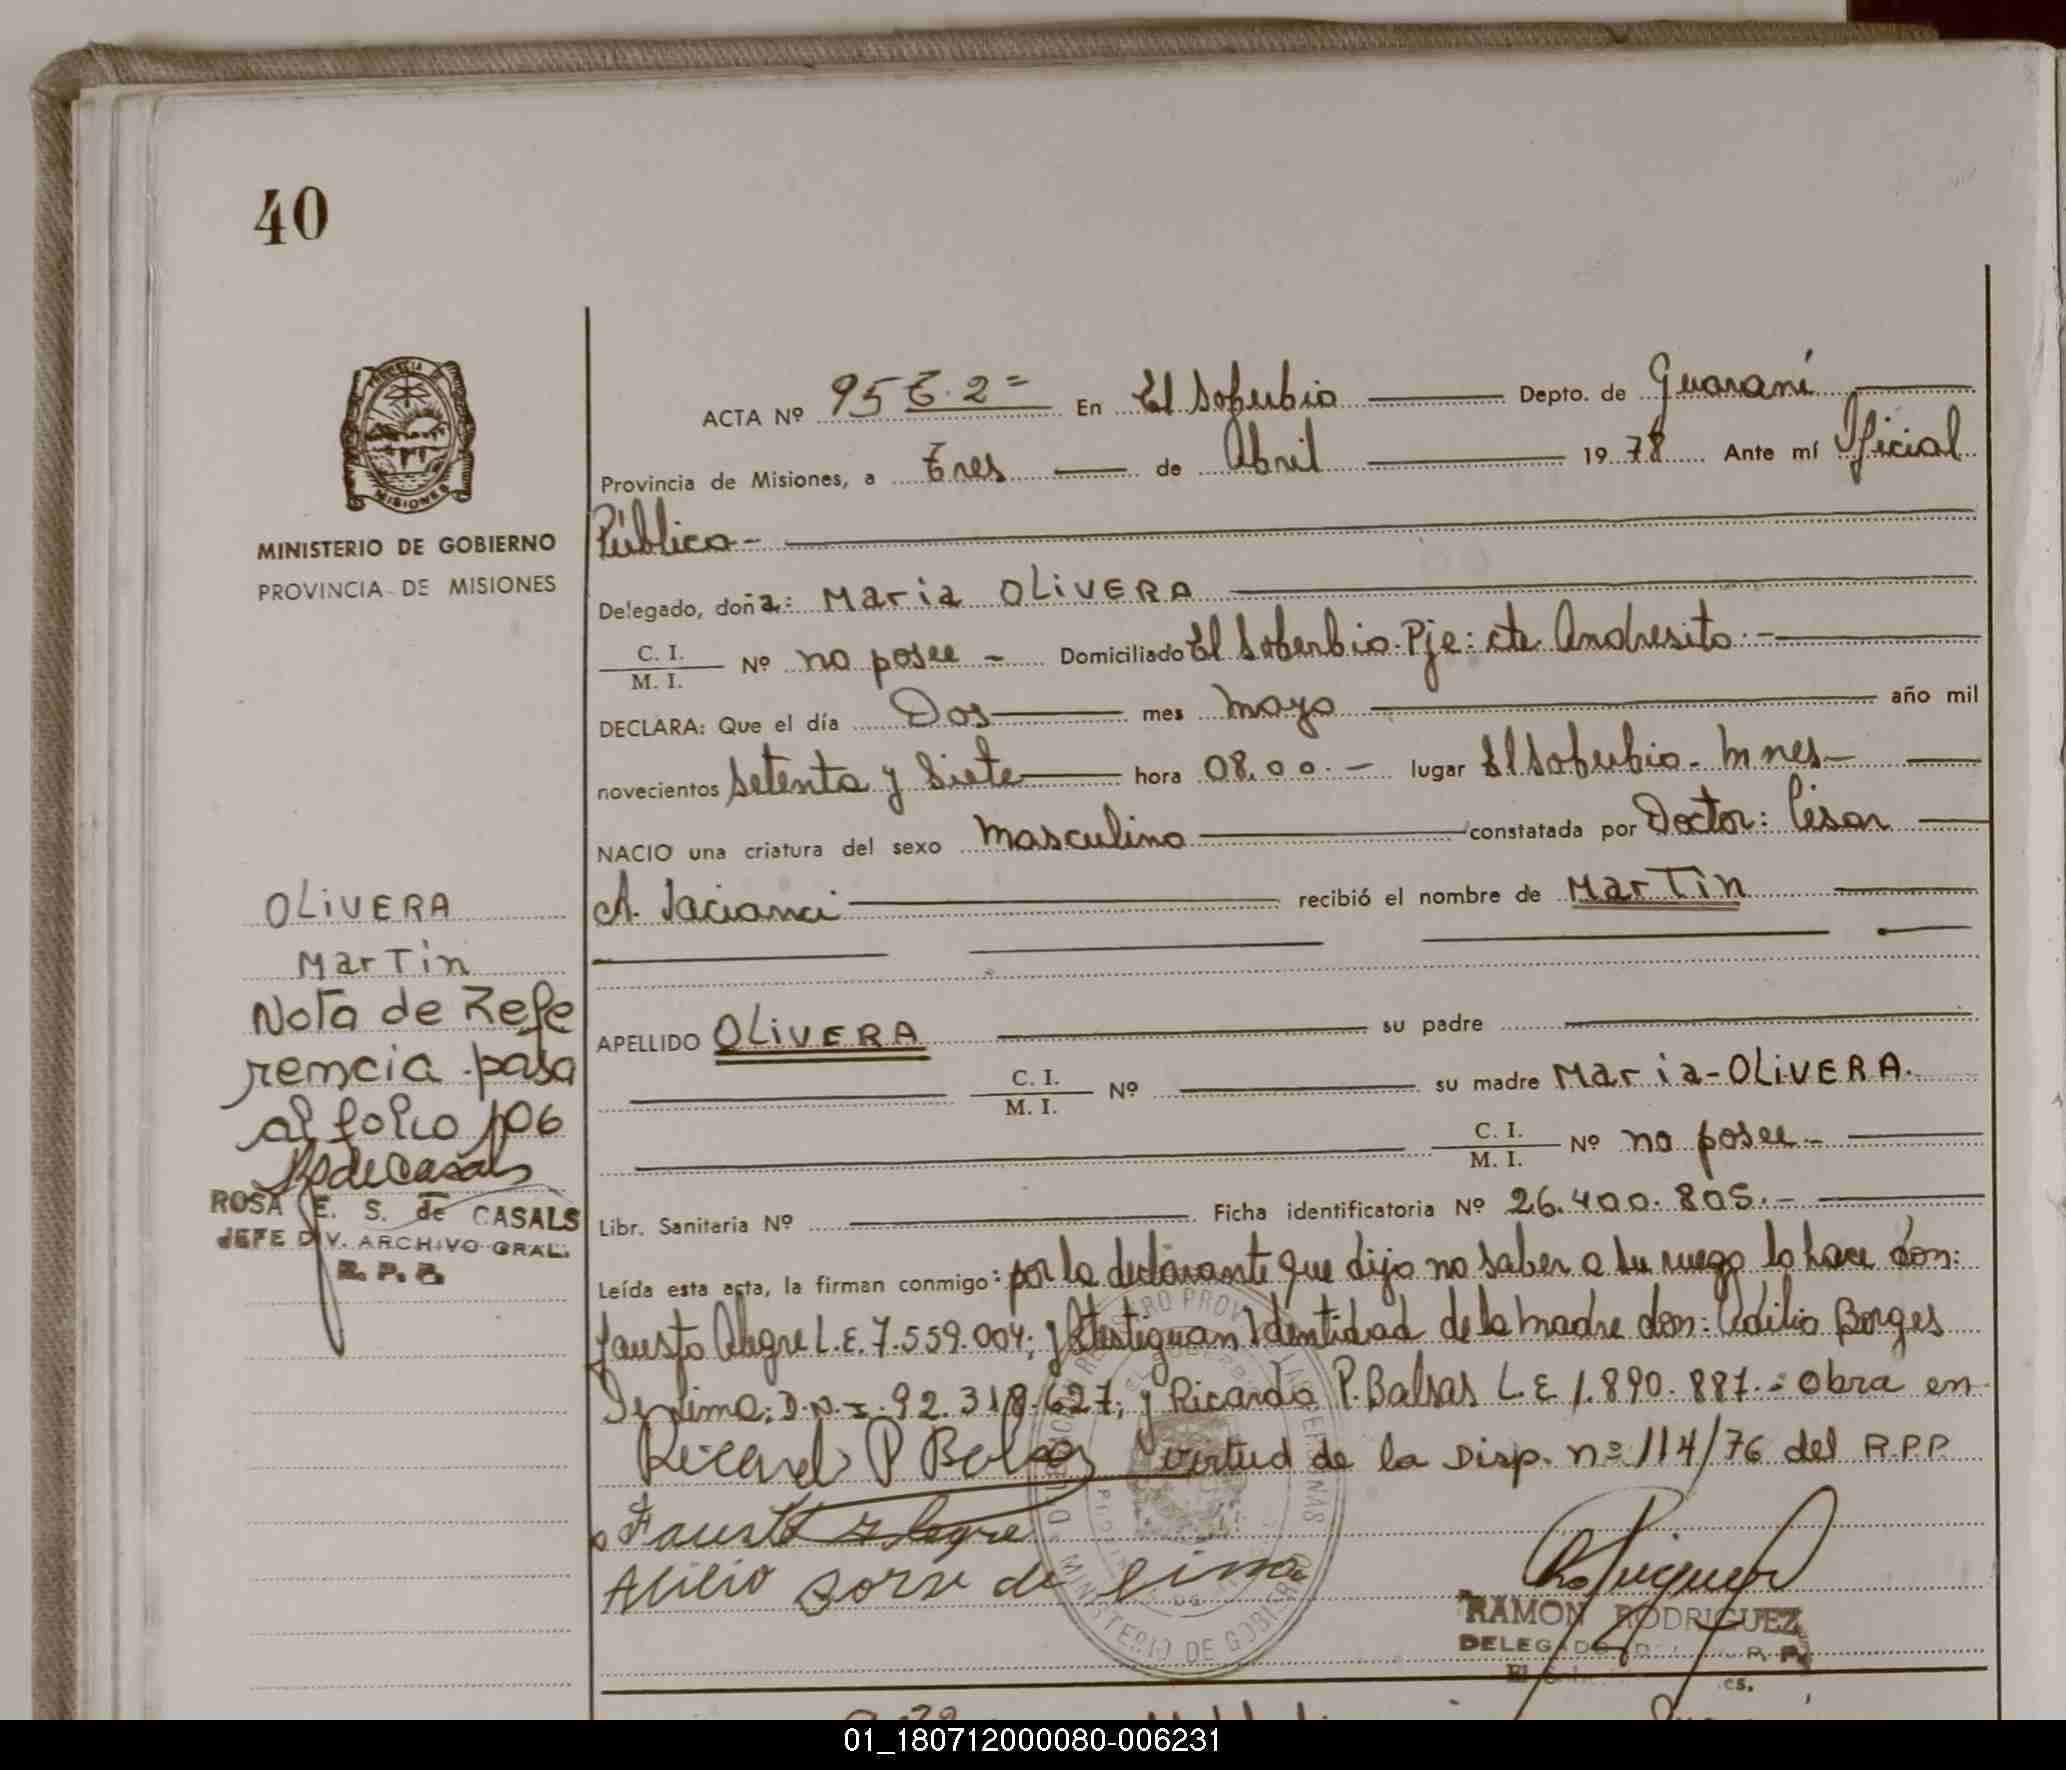 40
PROVINCIA DE
MISIONES
MINISTERIO DE GOBIERNO
PROVINCIA DE MISIONES
ACTA Nº 95 T. 2= En El Soberbio Depto. de Guaraní
Provincia de Misiones, a Tres de Abril 19 78 Ante mí Oficial
Público -
Delegado, doña: Maria OLIVERA
C. I.
M. I. Nº no posee - Domiciliado El Soberbio. Pje: cte. Andresito. -
DECLARA: Que el día Dos mes mayo año mil
novecientos Setenta y Siete hora 08,00. - lugar El Soberbio - Mnes -
NACIO una criatura del sexo masculino constatada por Doctor: César
A. recibió el nombre de Martin
APELLIDO OLIVERA su padre
C. I.
M. I. Nº su madre Maria - OLIVERA.
C. I.
M. I. Nº no posee -
Libr. Sanitaria Nº Ficha identificatoria Nº 26.400.805. -
Leída esta acta, la firman conmigo: por la declarante que dijo no saber a su ruego lo hace don:
Fausto Alegre L.E. 7.559.004; y Atestiguan Identidad de la madre don: Borges
D.N.I. 92.318.627; y Ricardo P. Balsas L.E 1.890.887. - Obra en
virtud de la Disp. nº 114/76 del R.P.P.
Ricardo P Balsas
Fausto Alegre
de lima
RAMON RODRIGUEZ
DELEGADO R. P.
OLIVERA
Martin
Nota de Refe
rencia pasa
al folio 106
ROSA E. S. de CASALS
JEFE DIV. ARCHIVO GRAL.
R. P. P.
MINISTERIO DE GOBIERNO
01_180712000080-006231